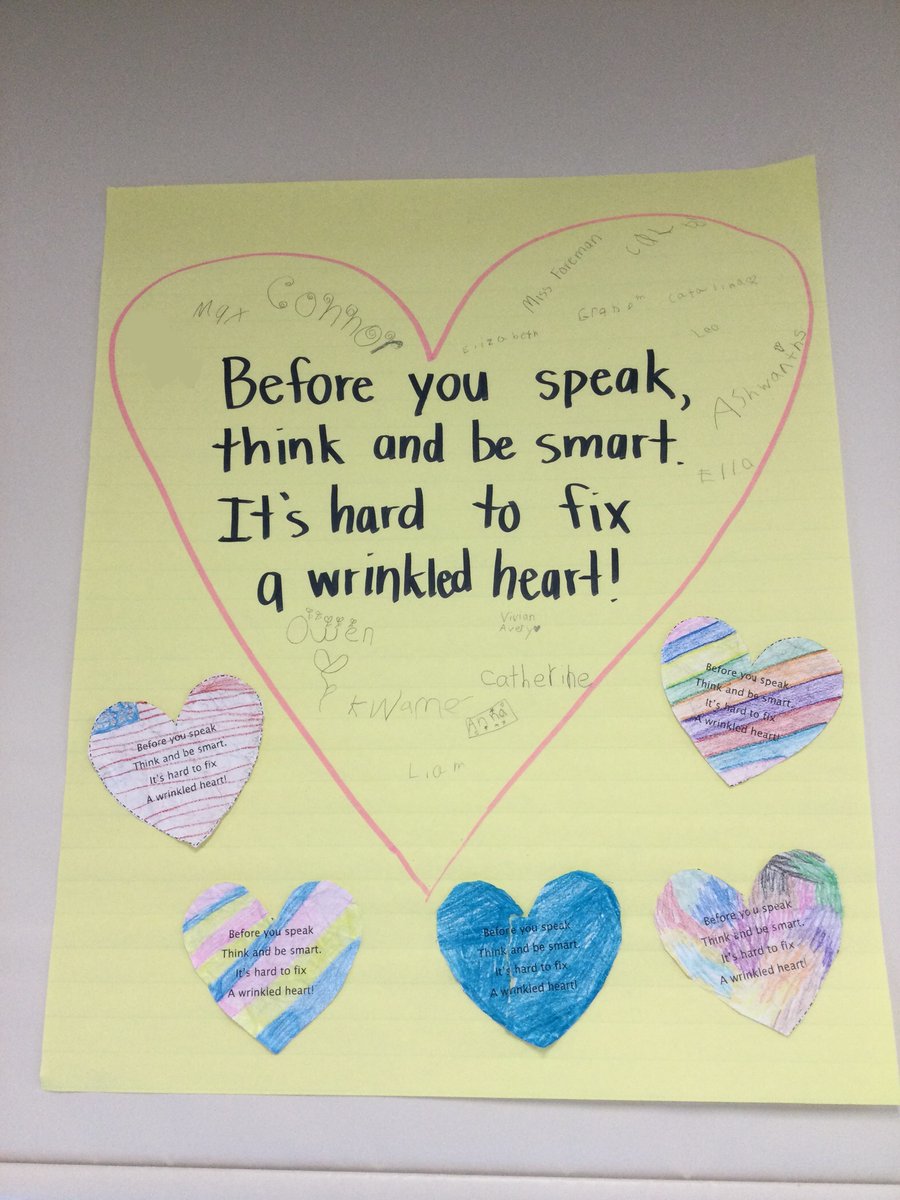 Max
Connor
Miss Foreman
Elizabeth
Graham
Catalina
Leo
Ella
Before you speak,
think and be smart.
It's hard to fix
a wrinkled heart!
Owen
Vivian
Avery
Catherine
Kwame
Anna
Liam
Before you speak
Think and be smart.
It's hard to fix
A wrinkled heart!
Before you speak
Think and be smart.
It's hard to fix
A wrinkled heart!
Before you speak
Think and be smart.
It's hard to fix
A wrinkled heart!
Before you speak
Think and be smart.
It's hard to fix
A wrinkled heart!
Before you speak
Think and be smart.
It's hard to fix
A wrinkled heart!